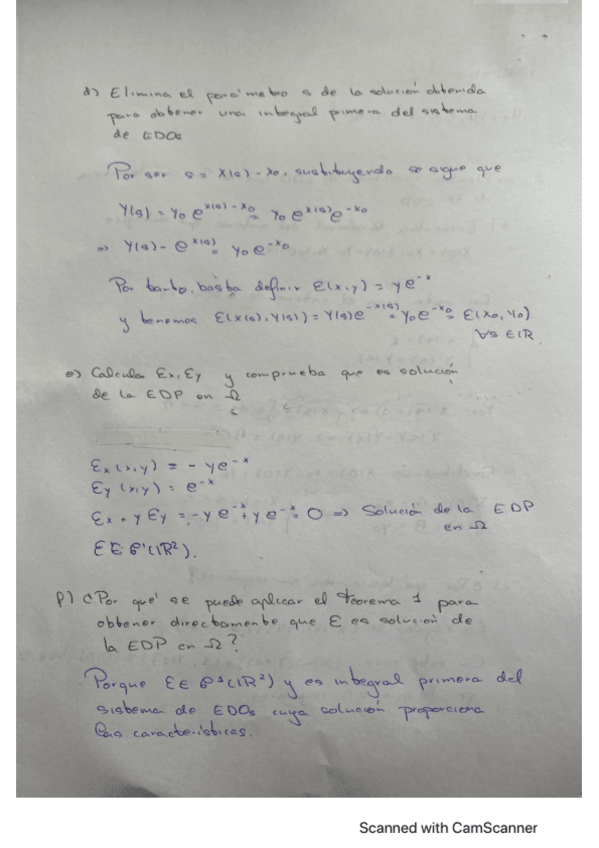 d) Elimina el parámetro s de la solución obtenida
para obtener una integral primera del sistema
de EDOs
Por ser s = X(s) - x₀, sustituyendo se sigue que
Y(s) = y₀ e^{X(s) - x₀} = y₀ e^{X(s)} e^{-x₀}
=> Y(s) - e^{X(s)} = y₀ e^{-x₀}
Por tanto, basta definir E(x,y) = y e^{-x}
y tenemos E(X(s), Y(s)) = Y(s) e^{-X(s)} = y₀ e^{-x₀} = E(x₀, y₀)
∀s ∈ IR
e) Calcula Ex, Ey y comprueba que es solución
de la EDP en Ω
Ex(x,y) = - y e^{-x}
Ey(x,y) = e^{-x}
Ex + y Ey = - y e^{-x} + y e^{-x} = 0 => Solución de la EDP
en Ω
E ∈ C¹(IR²).
f) ¿Por qué se puede aplicar el teorema 1 para
obtener directamente que E es solución de
la EDP en Ω?
Porque E ∈ C¹(IR²) y es integral primera del
sistema de EDOs cuya solución proporciona
las características.
Scanned with CamScanner